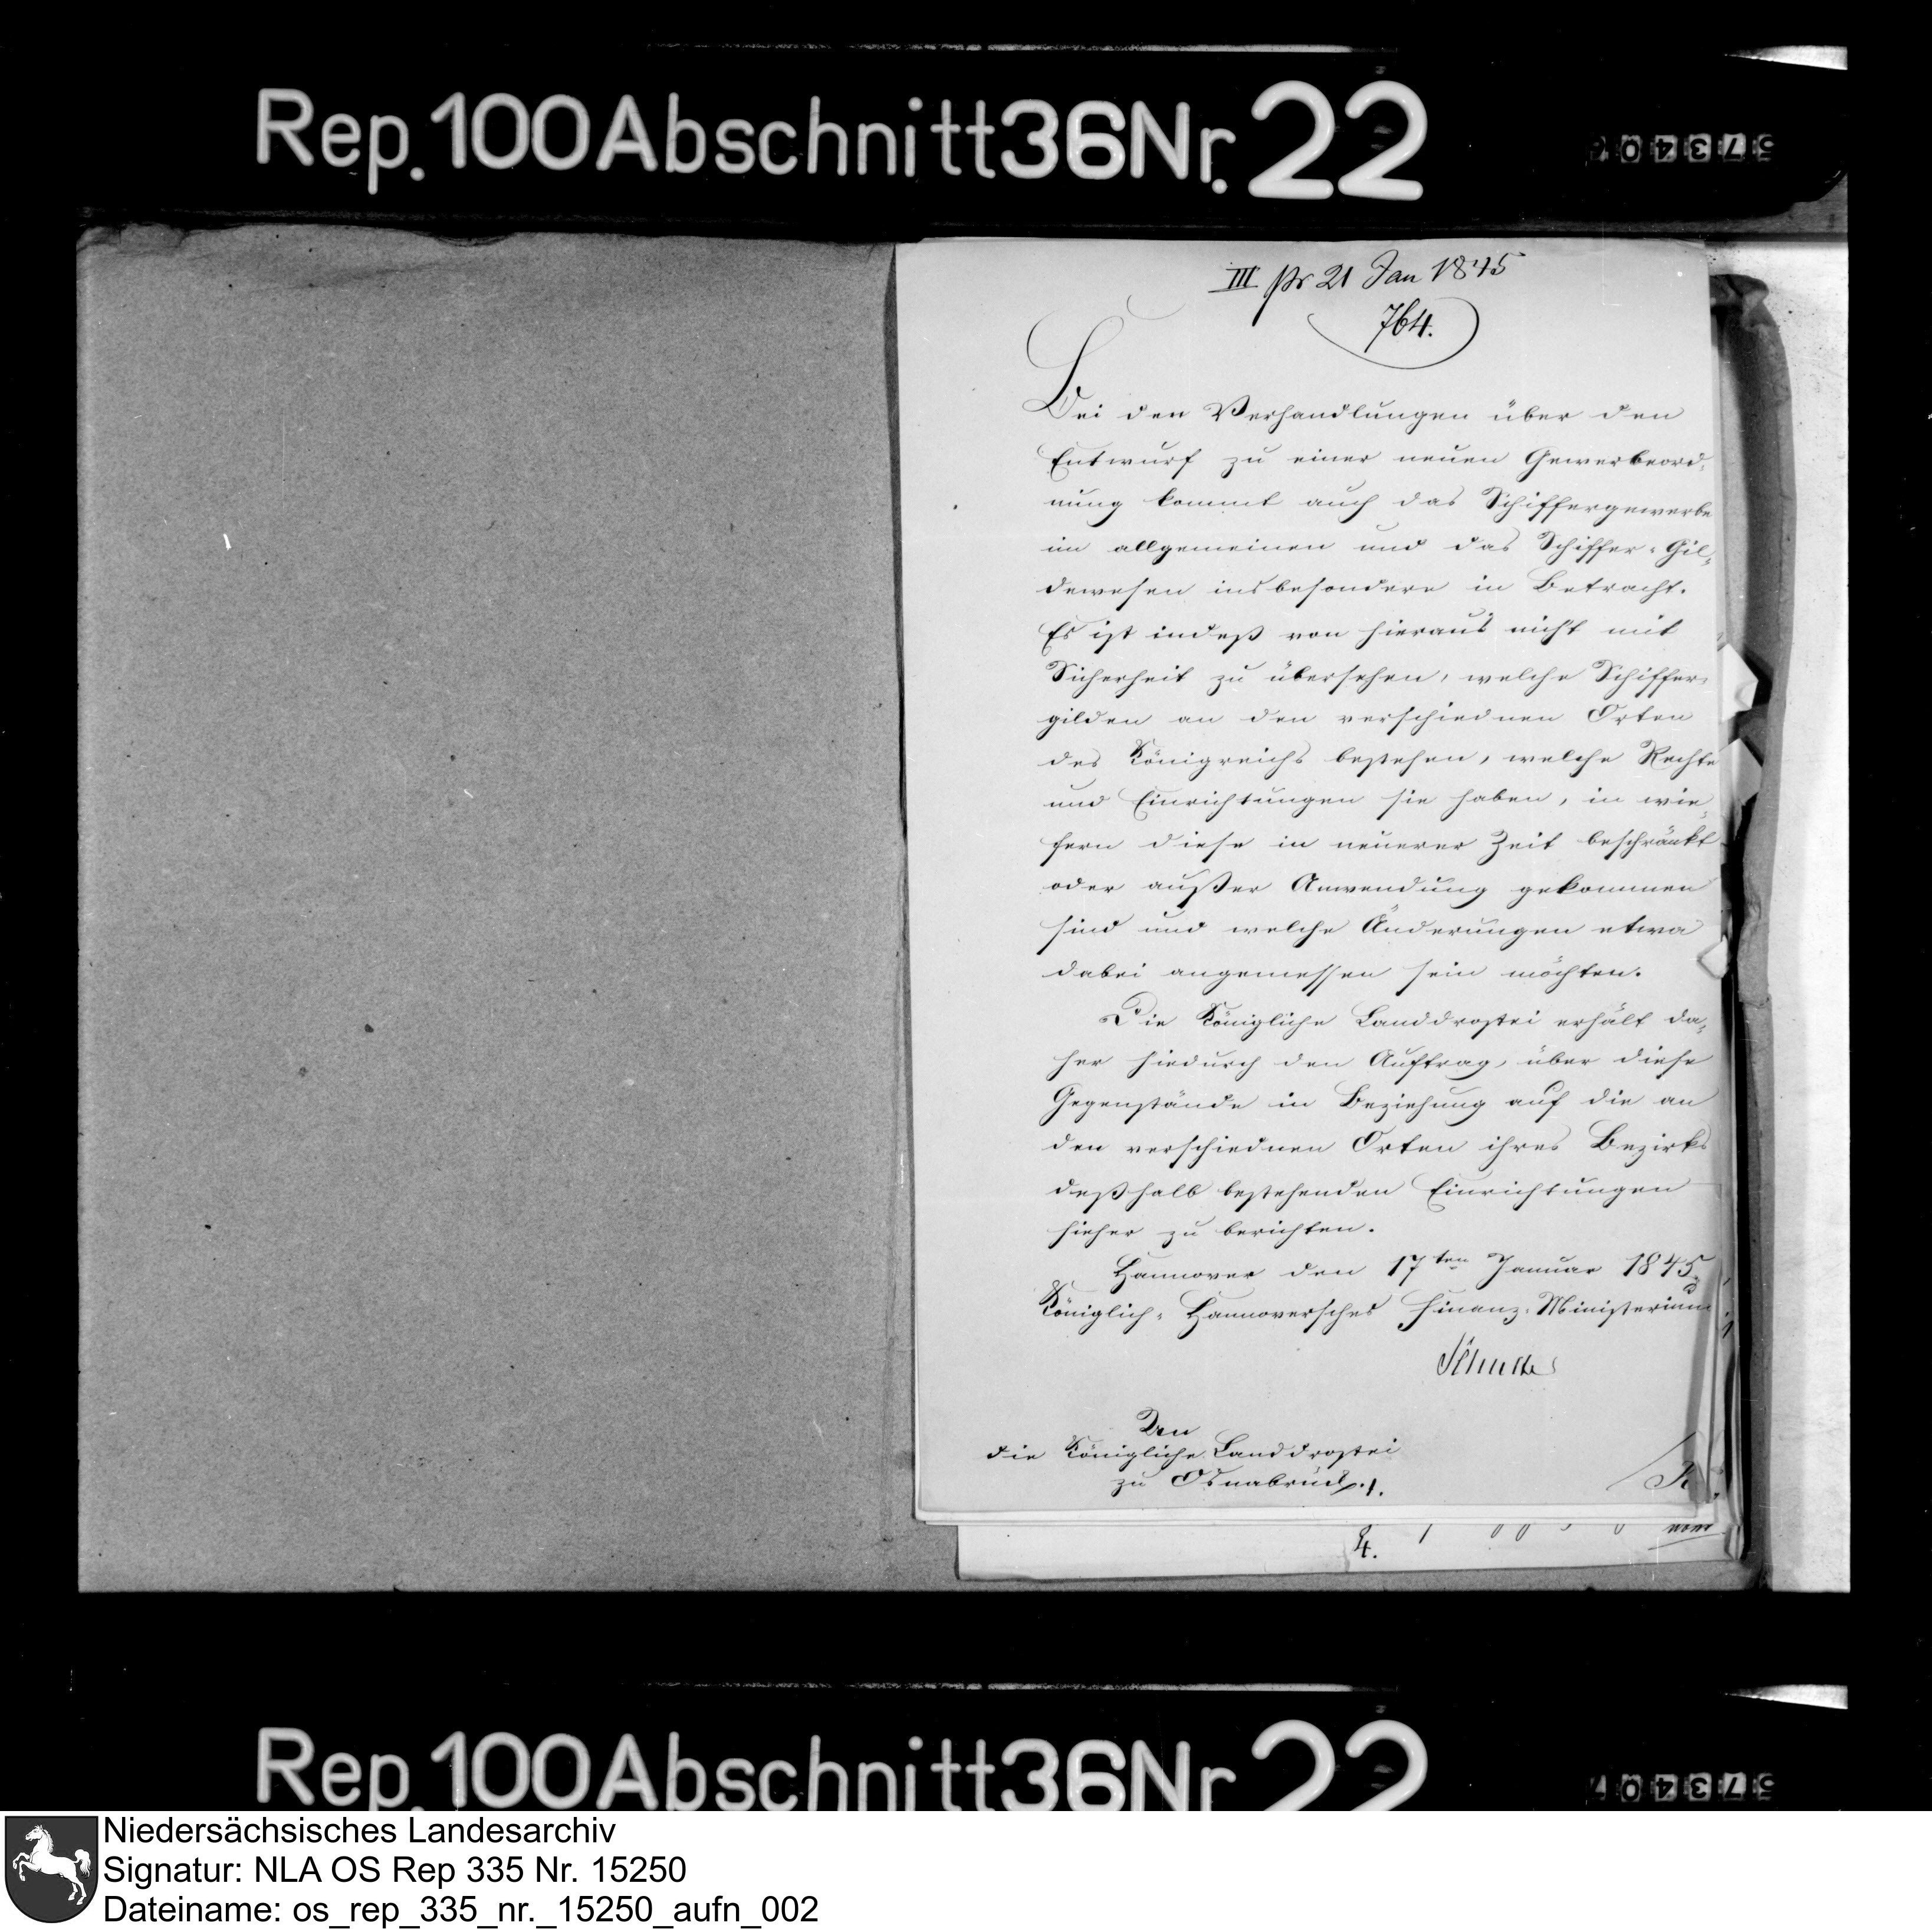 Rep. 100 Abschnitt 36 Nr. 22
III pr 21 Jan 1845
764.
Bei den Verhandlungen über den
Entwurf zu einer neuen Gewerbeord-
nung kommt auch das Schiffergewerbe
im allgemeinen und das Schiffer-Gil-
dewesen insbesondere in Betracht.
Es ist indeß von hieraus nicht mit
Sicherheit zu übersehen, welche Schiffer-
gilden an den verschiednen Orten
des Königreichs bestehen, welche Rechte
und Einrichtungen sie haben, in wie-
fern diese in neuerer Zeit beschränkt
oder außer Anwendung gekommen
sind und welche Änderungen etwa
dabei angemessen sein möchten.
Die Königliche Landdrostei erhält da-
her hiedurch den Auftrag, über diese
Gegenstände in Beziehung auf die an
den verschiednen Orten ihres Bezirks
deßhalb bestehenden Einrichtungen
hieher zu berichten.
Hannover den 17ten Januar 1845.
Königlich-Hannoversches Finanz-Ministerium
Schulte
An
die Königliche Landdrostei
zu Osnabrück.
4.
Rep. 100 Abschnitt 36 Nr. 22
Niedersächsisches Landesarchiv
Signatur: NLA OS Rep 335 Nr. 15250
Dateiname: os_rep_335_nr._15250_aufn_002